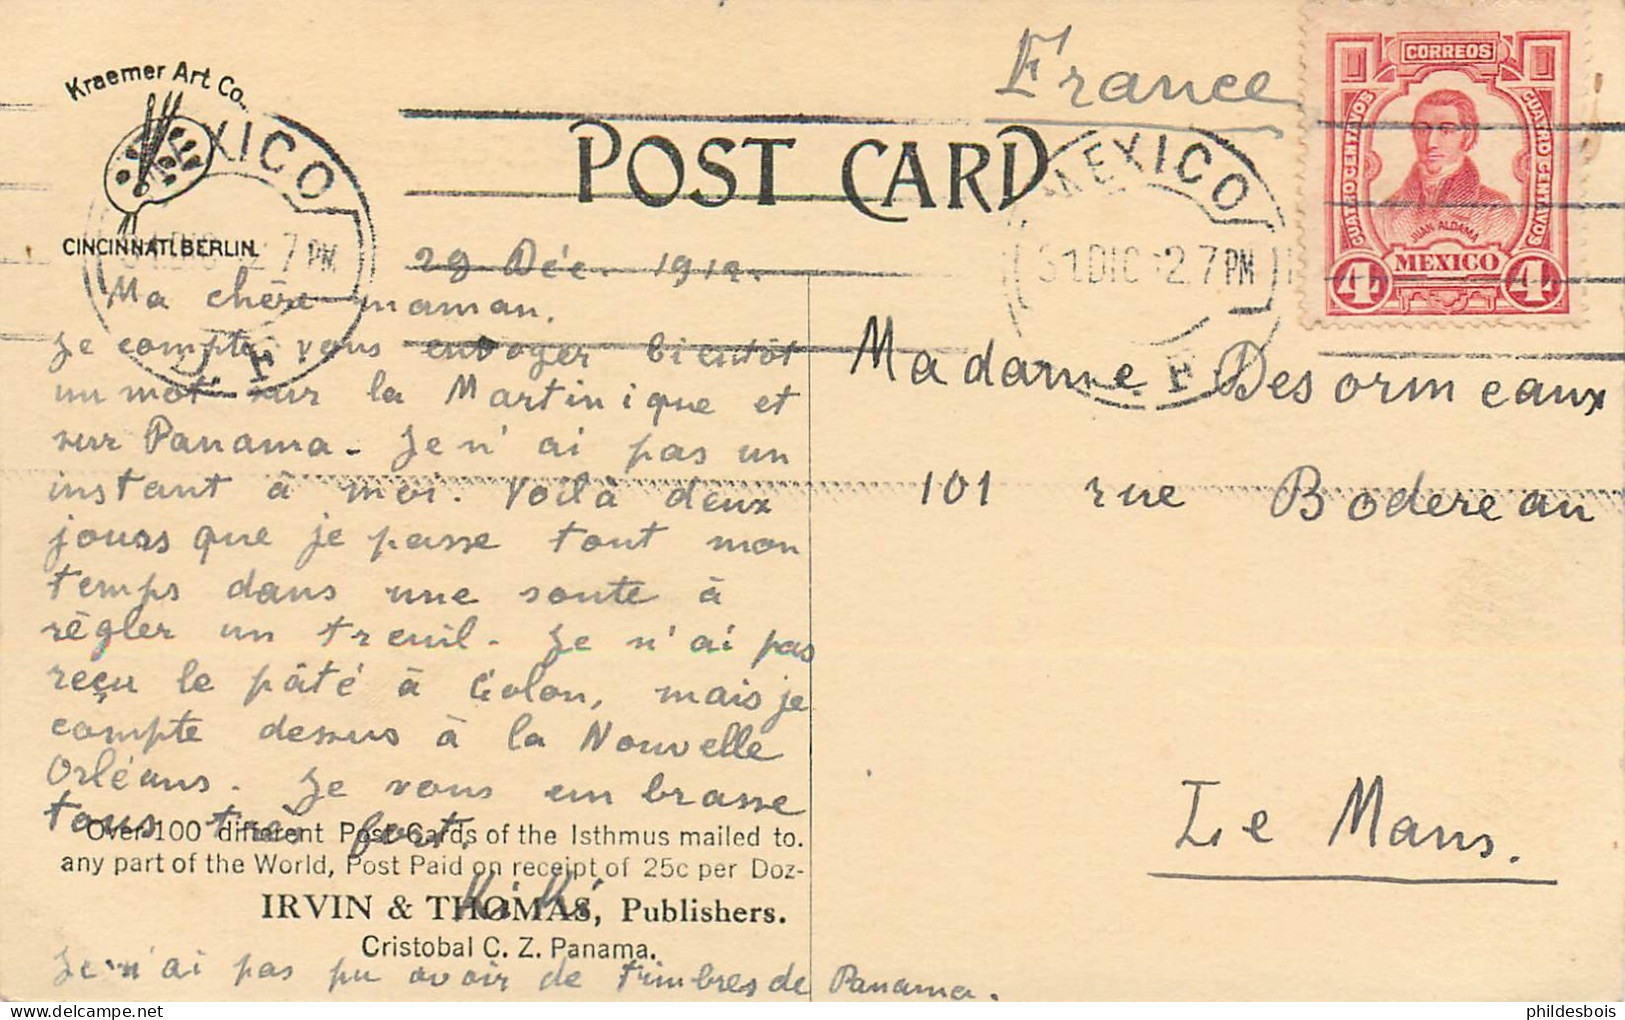 Kraemer Art Co.
CINCINNATI.BERLIN.
POST CARD
France
MEXICO
31 DIC 12 7 PM
MEXICO
31 DIC 12 7 PM
CORREOS
CUATRO CENTAVOS
CUATRO CENTAVOS
JUAN ALDAMA
MEXICO
4 4
29 Déc. 1912.
Ma chère maman,
Je compte vous envoyer bientôt
un mot sur la Martinique et
sur Panama. Je n'ai pas un
instant à moi. Voilà deux
jours que je passe tout mon
temps dans une soute à
règler un treuil. Je n'ai pas
reçu le pâté à Colon, mais je
compte dessus à la Nouvelle
Orléans. Je vous embrasse
tous très fort.
Madame Desormeaux
101 rue Bodereau
Le Mans.
Over 100 different Post Cards of the Isthmus mailed to.
any part of the World, Post Paid on receipt of 25c per Doz-
IRVIN & THOMAS, Publishers.
Cristobal C. Z. Panama.
Je n'ai pas pu avoir de timbres de Panama.
phildesbois